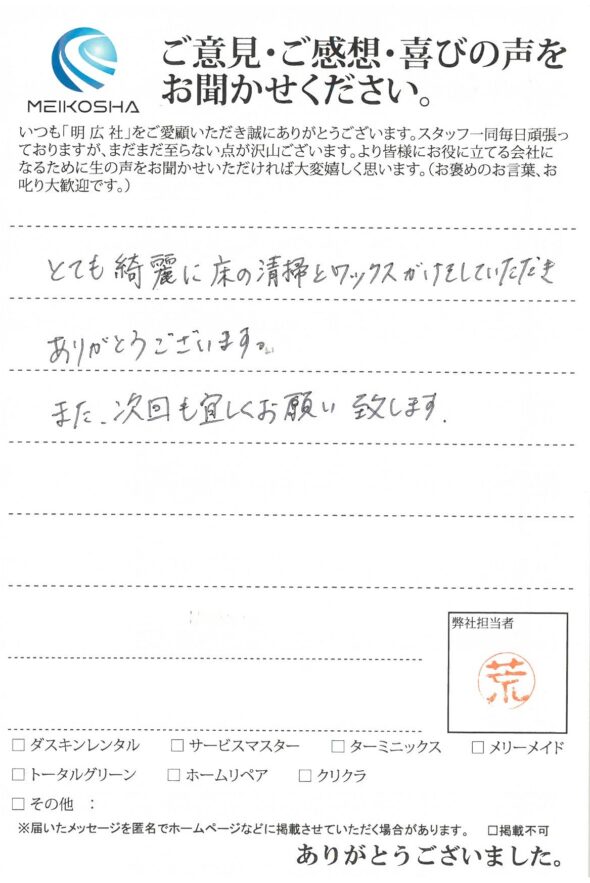 MEIKOSHA
ご意見・ご感想・喜びの声を
お聞かせください。
いつも「明広社」をご愛顧いただき誠にありがとうございます。スタッフ一同毎日頑張っ
ておりますが、まだまだ至らない点が沢山ございます。より皆様にお役に立てる会社に
なるために生の声をお聞かせいただければ大変嬉しく思います。(お褒めのお言葉、お
叱り大歓迎です。)
とても綺麗に床の清掃とワックスがけをしていただき
ありがとうございます。
また、次回も宜しくお願い致します.
弊社担当者
荒
□ ダスキンレンタル □ サービスマスター □ ターミニックス □ メリーメイド
□ トータルグリーン □ ホームリペア □ クリクラ
□ その他 :
※届いたメッセージを匿名でホームページなどに掲載させていただく場合があります。 □掲載不可
ありがとうございました。